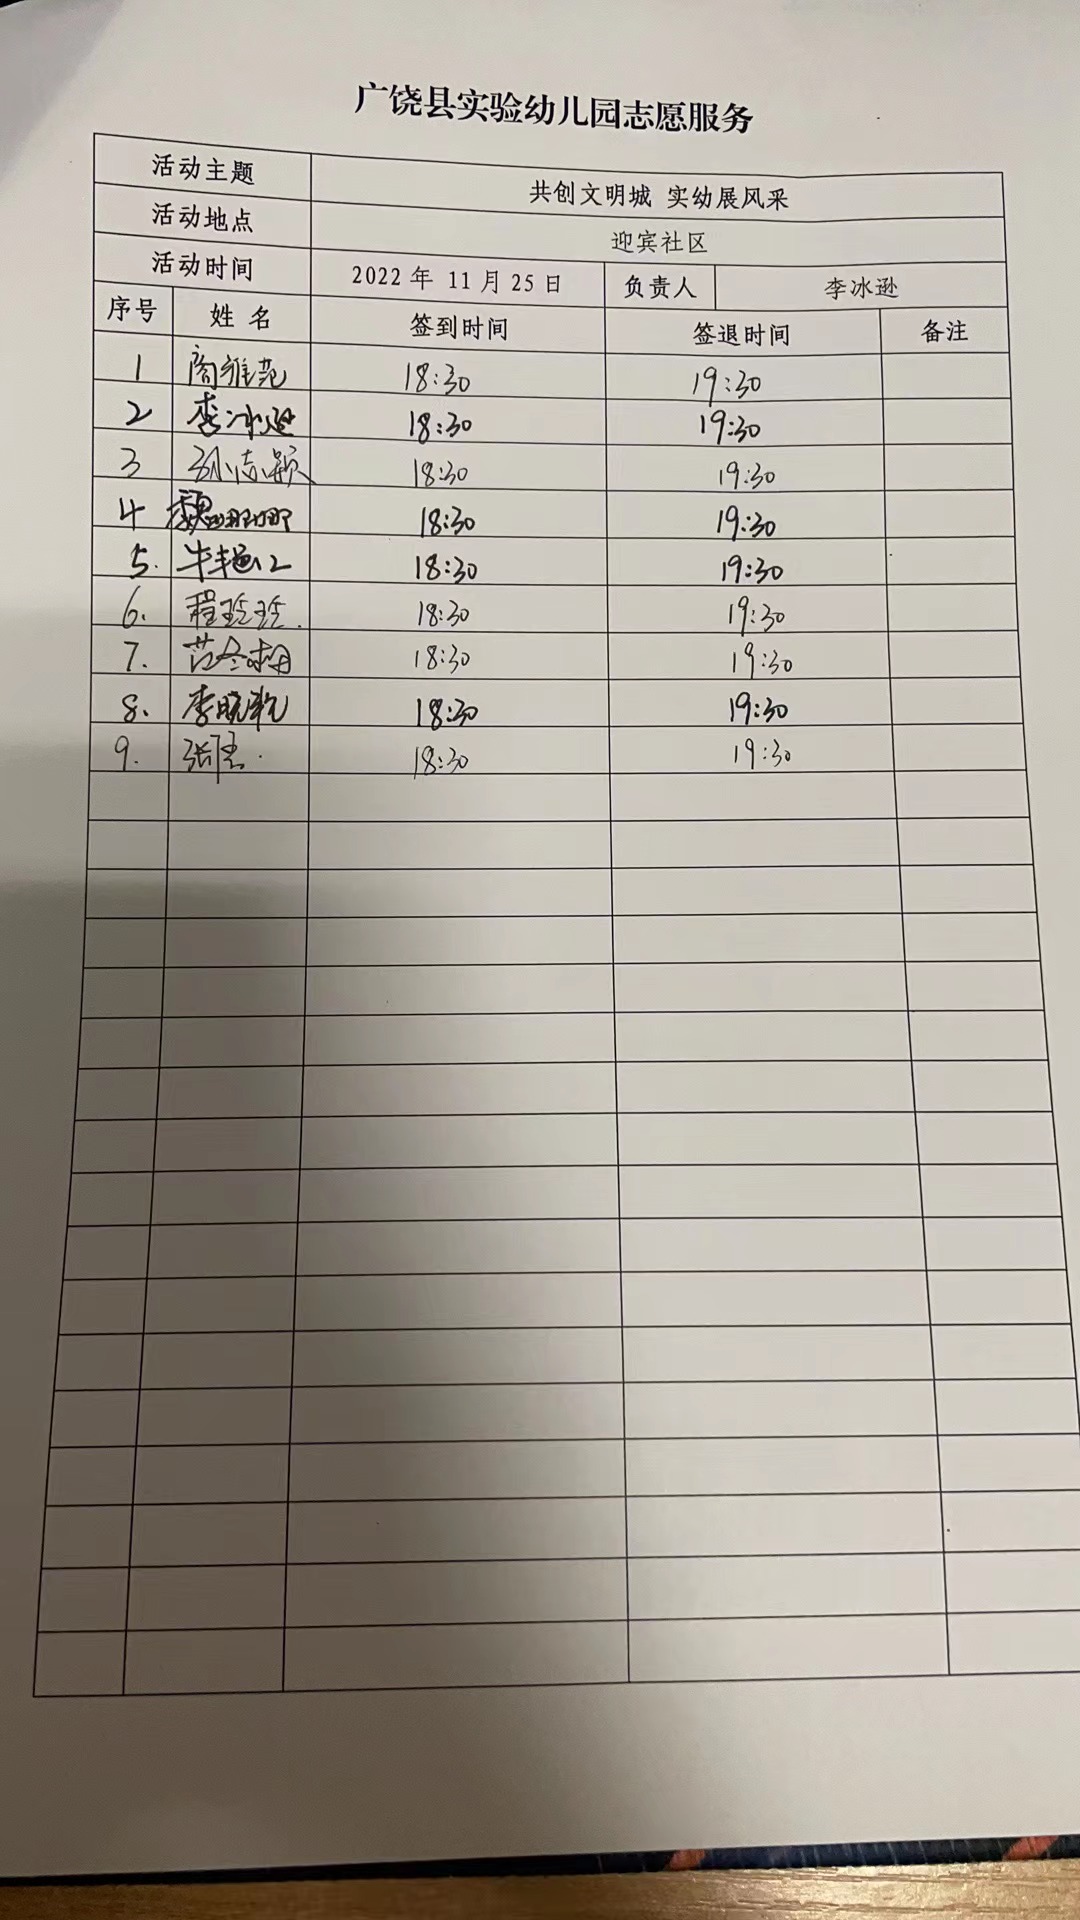 广饶县实验幼儿园志愿服务
活动主题 共创文明城 实幼展风采
活动地点 迎宾社区
活动时间 2022年 11月25日 负责人 李冰逊
序号 姓名 签到时间 签退时间 备注
1 商雅苑 18:30 19:30
2 李冰逊 18:30 19:30
3 孙志颖 18:30 19:30
4 魏娜娜 18:30 19:30
5. 牛艳 18:30 19:30
6. 程玲玲. 18:30 19:30
7. 范冬梅 18:30 19:30
8. 李晓 18:30 19:30
9. 张 18:30 19:30